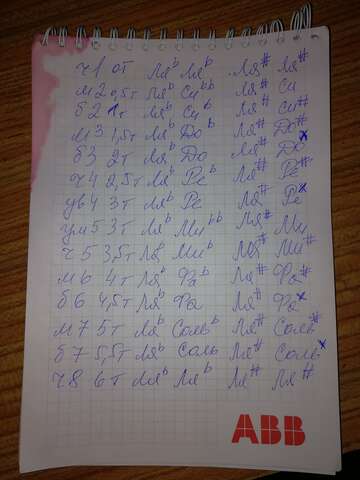 ч1 0т Ля♭ Ля♭ Ля# Ля#
м2 0,5т Ля♭ Си♭♭ Ля# Си
б2 1т Ля♭ Си♭ Ля# Си#
м3 1,5т Ля♭ До♭ Ля# До#
б3 2т Ля♭ До Ля# Доx
ч4 2,5т Ля♭ Ре♭ Ля# Ре#
ув4 3т Ля♭ Ре Ля# Реx
ум5 3т Ля♭ Ми♭♭ Ля# Ми
ч5 3,5т Ля♭ Ми♭ Ля# Ми#
м6 4т Ля♭ Фа♭ Ля# Фа#
б6 4,5т Ля♭ Фа Ля# Фаx
м7 5т Ля♭ Соль♭ Ля# Соль#
б7 5,5т Ля♭ Соль Ля# Сольx
ч8 6т Ля♭ Ля♭ Ля# Ля#
ABB